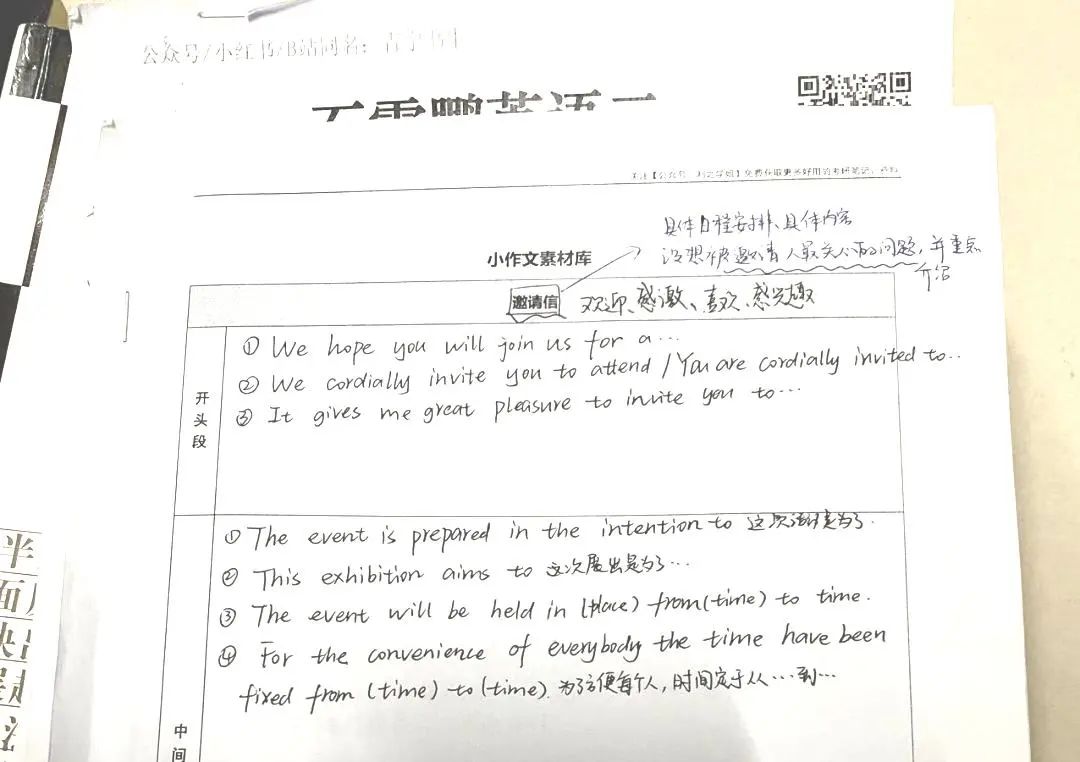 公众号/小红书/B站同名：
关注【公众号：
】免费获取更多好用的考研笔记、资料
具体日程安排、具体内容
设想被邀请人最关心的问题，并重点
介绍
小作文素材库
邀请信 欢迎、感激、喜欢、感兴趣
开头段
① We hope you will join us for a…
② We cordially invite you to attend / You are cordially invited to..
③ It gives me great pleasure to invite you to…
① The event is prepared in the intention to 这次活动是为了.
② This exhibition aims to 这次展出是为了…
③ The event will be held in (place) from (time) to time.
④ For the convenience of everybody the time have been
fixed from (time) to (time). 为了方便每个人，时间定于从…到…
中间
半
面